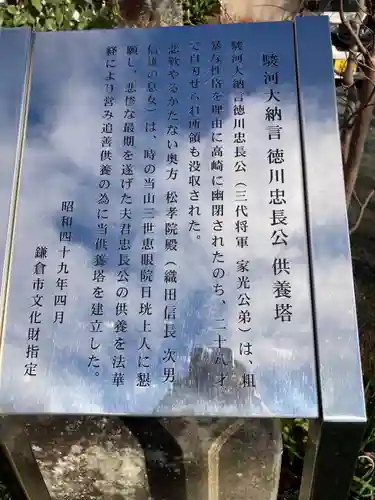 駿河大納言 徳川忠長公 供養塔
駿河大納言徳川忠長公（三代将軍 家光公弟）は、粗
暴な性格を理由に高崎に幽閉されたのち、二十八才
で自刃せられ所領も没収された。
悲歎やるかたない奥方 松孝院殿（織田信長 次男
信雄の息女）は、時の当山三世恵眼院日珖上人に懇
願し、悲惨な最期を遂げた夫君忠長公の供養を法華
経により営み追善供養の為に当供養塔を建立した。
昭和四十九年四月
鎌倉市文化財指定